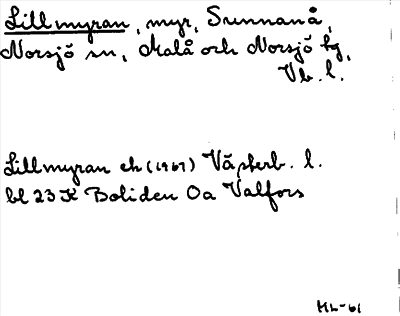 Lillmyran, myr, Sunnanå,
Norsjö sn, Malå och Norsjö tg,
Vb. l.
Lillmyran ek (1967) Västerb. l.
bl 23 K Boliden Oa Valfors
ML-61